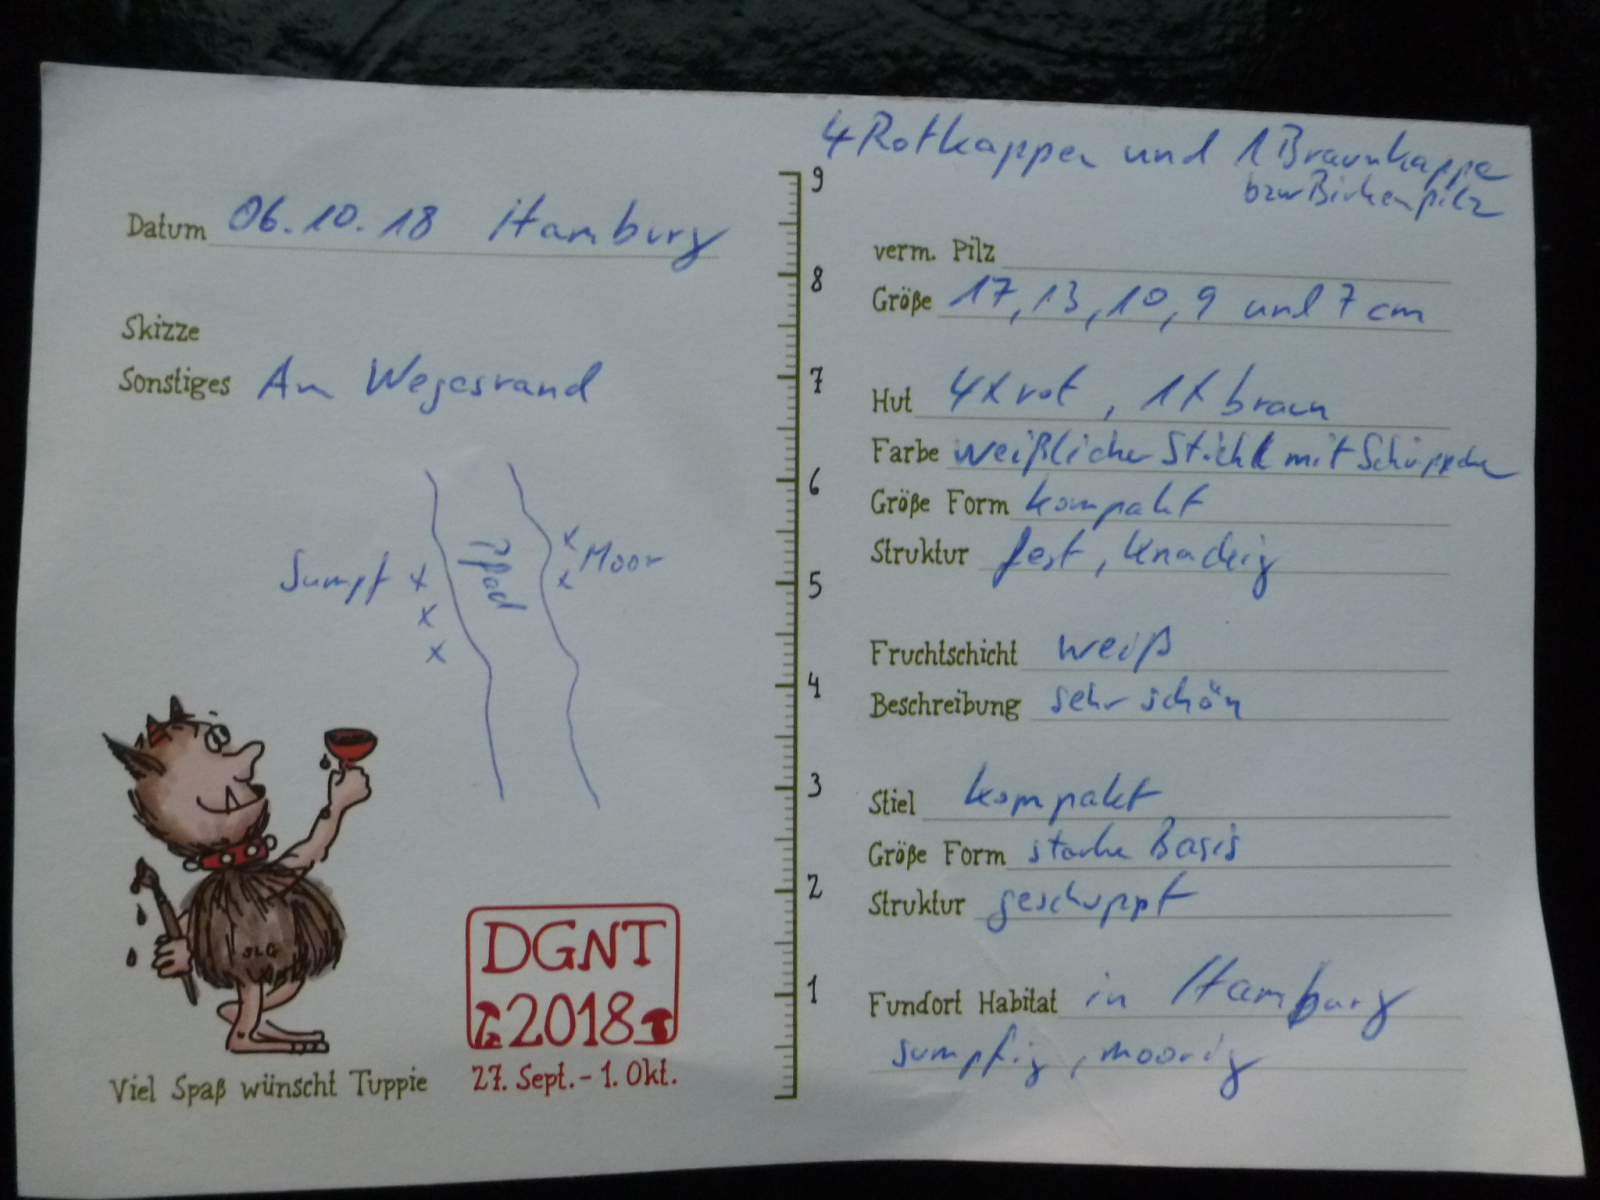 Datum 06.10.18 Hamburg
Skizze
Sonstiges Am Wegesrand
Sumpf x x x
Pfad
x x Moor
SLG
Viel Spaß wünscht Tuppie
DGNT
2018
27. Sept. - 1. Okt.
9
8
7
6
5
4
3
2
1
4 Rotkappen und 1 Braunkappe
bzw Birkenpilz
verm. Pilz
Größe 17, 13, 10, 9 und 7 cm
Hut 4x rot, 1x braun
Farbe weißlicher mit
Größe Form kompakt
Struktur fest, knackig
Fruchtschicht weiß
Beschreibung sehr schön
Stiel kompakt
Größe Form starke Basis
Struktur geschuppt
Fundort Habitat in Hamburg
sumpfig, moorig